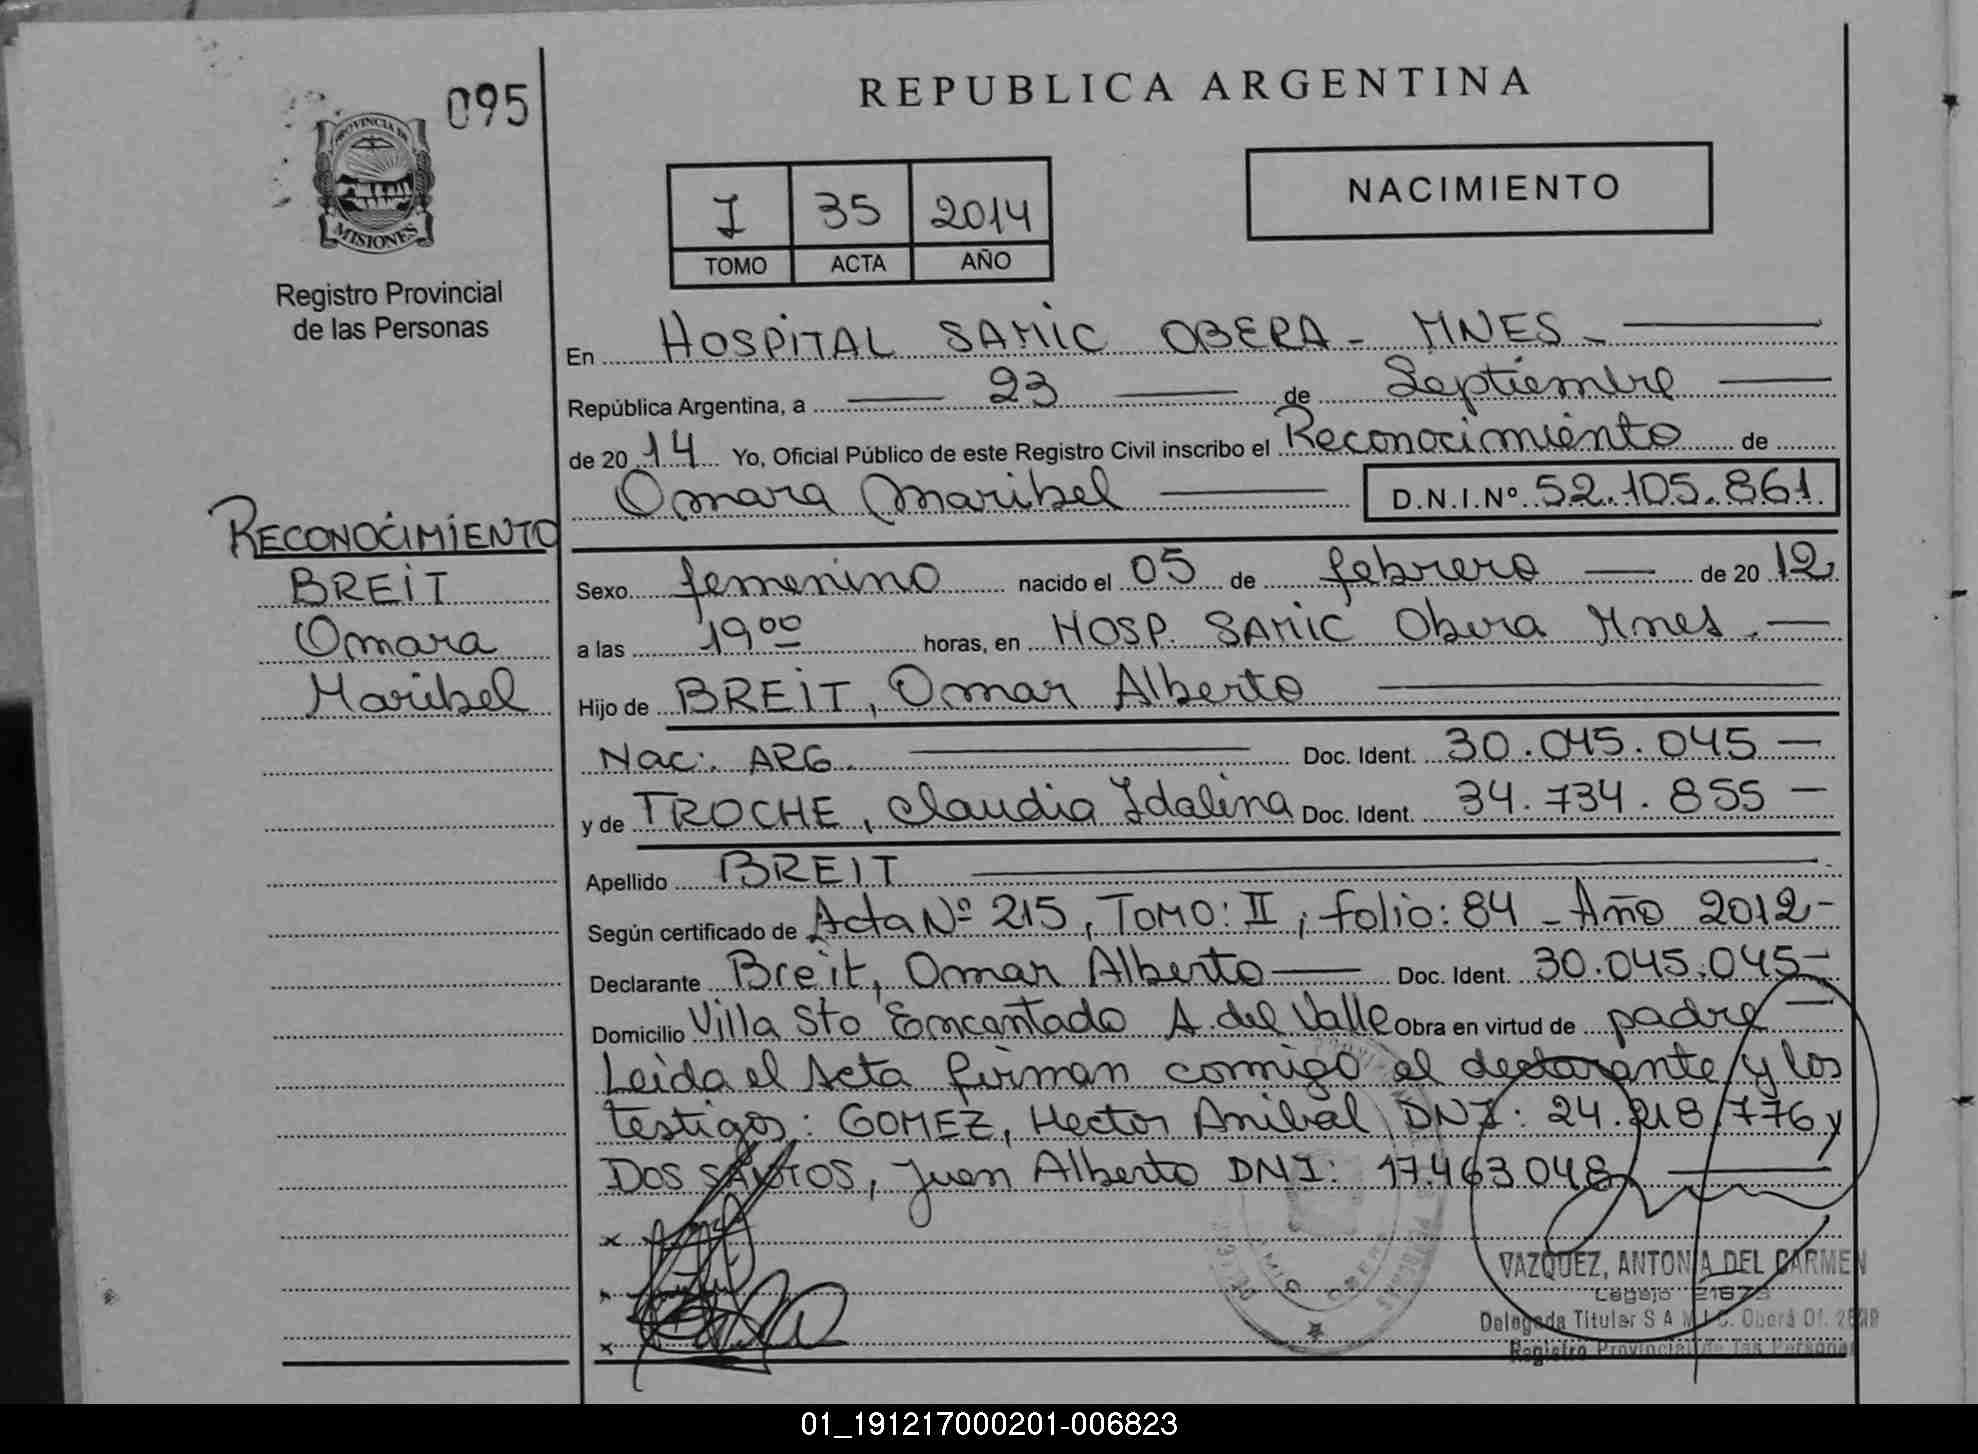 REPUBLICA ARGENTINA
095
PROVINCIA DE
MISIONES
Registro Provincial
de las Personas
I 35 2014
TOMO ACTA AÑO
NACIMIENTO
En HOSPITAL SAMIC OBERA - MNES -
República Argentina, a 23 de Septiembre
de 2014 Yo, Oficial Público de este Registro Civil inscribo el Reconocimiento de
Omara Maribel D.N.I.Nº 52.105.861
RECONOCIMIENTO
BREIT
Omara
Maribel
Sexo femenino nacido el 05 de febrero de 2012
a las 19 00 horas, en HOSP. SAMIC Obera Mnes.
Hijo de BREIT, Omar Alberto
Nac: ARG. Doc. Ident. 30.045.045
y de TROCHE, Claudia Idalina Doc. Ident. 34.734.855
Apellido BREIT
Según certificado de Acta Nº 215, TOMO: II, folio: 84 - Año 2012-
Declarante Breit, Omar Alberto Doc. Ident. 30.045.045
Domicilio Villa Sto Encantado A. del Valle Obra en virtud de padre
Leida el Acta firman conmigo el declarante y los
testigos: GOMEZ, Hector Anibal DNI: 24.218.776 y
DOS SANTOS, Juan Alberto DNI: 17.463.048
x
x
VAZQUEZ, ANTONIA DEL CARMEN
Legajo
Delegada Titular S A M I C. Oberá Of.
Registro Provincial de las Personas
01_191217000201-006823